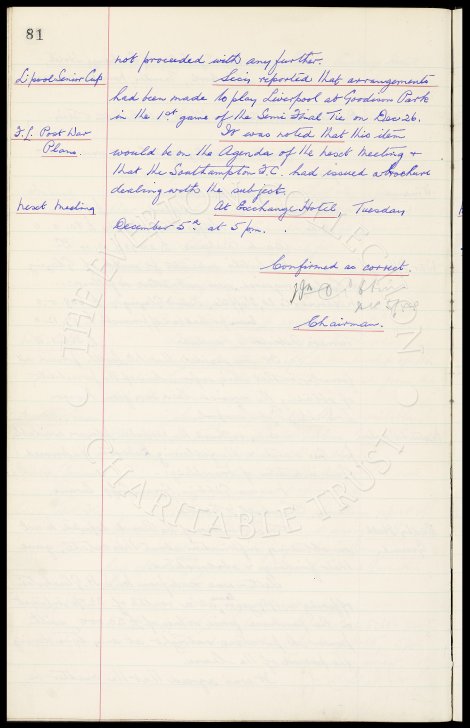 81
not proceeded with any further.
L'pool Senior Cup
Secy reported that arrangements
had been made to play Liverpool at Goodison Park
in the 1st game of the Semi Final Tie on Dec 26.
F.L. Post War
Plans.
It was noted that this item
would be on the Agenda of the next Meeting &
that the Southampton F.C. had issued a brochure
dealing with the subject.
Next Meeting
At Exchange Hotel, Tuesday
December 5th at 5 pm.
Confirmed as correct.
Chairman.
THE EVERTON COLLECTION
CHARITABLE TRUST